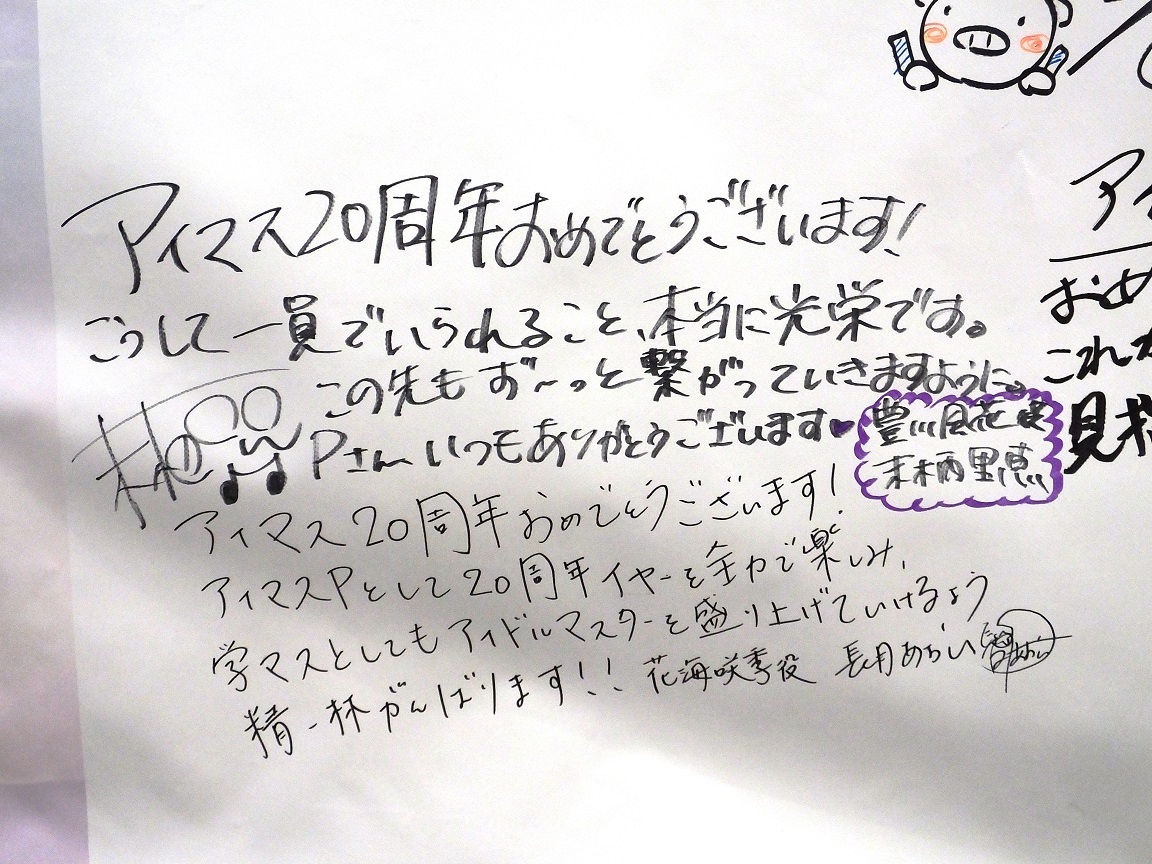 アイマス20周年おめでとうございます!
こうして一員でいられること、本当に光栄です。
この先もず〜っと繋がっていきますように。
Pさんいつもありがとうございます
豊川風花役
末柄里恵
アイマス20周年おめでとうございます!
アイマスPとして20周年イヤーを全力で楽しみ、
学マスとしてもアイドルマスターを盛り上げていけるよう
精一杯がんばります!! 花海咲季役 長月あおい
アイ
おめ
これか
見